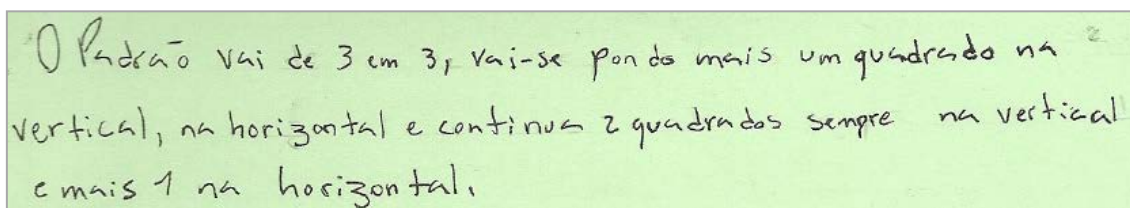 O Padrão vai de 3 em 3, vai-se pondo mais um quadrado na
vertical, na horizontal e continua 2 quadrados sempre na vertical
e mais 1 na horizontal.